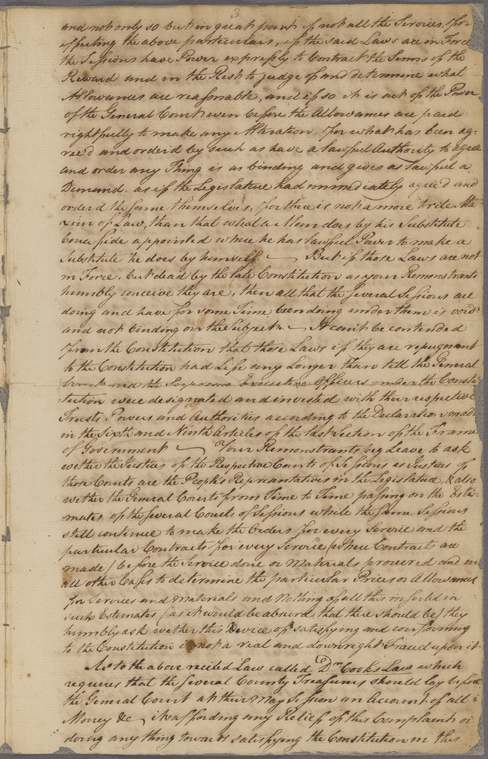 and not only so but in great part if not all the Services, for
effecting the above particulars, if the said Laws are in Force
the Sessions have Power expressly to Contract the Sums of the
Reward and in the Rest to judge of and determine what
Allowances are reasonable, and if so it is out of the Power
of the General Court even before the Allowances are paid
rightfully to make any Alteration. for what has been ag-
reed and orderd by such as have a lawfull authority to agree
and order any Thing is as binding and gives as lawfull a
Demand as if the Legislature had immediately agree'd and
orderd the same themselves, for there is not a more trite Ma-
xim of Law, than that what a Man does by his Substitute
bona fide appointed where he has lawful Power to make a
Substitute he does by himself But if those Laws are not
in Force, but dead by the late Constitution as your Remonstrants
humbly conceive they are, then all that the several Sessions are
doing and have for some Time been doing under them is void
and not binding on the Subject It cant be contended
from the Constitution that those Laws if they are repugnant
to the Constitution had Life any longer Than till the General
Court and the Supreme Executive Officers under the Consti-
tution were designated and invested with their respective
Trusts Powers and Authorities according to the Declaration made
in the Sixth and Ninth Articles of the last Section of the Frame
of Government Your Remonstrants beg Leave to ask
wether the Justices of the Respective Courts of Sessions as Justices of
those Courts are the People's Representatives in the Legislature, & also
wether the General Courts from Time to Time passing on the Esti-
mates of the several Courts of Sessions while the same Sessions
still continue to make the Orders for every Service and the
particular Contracts for every Service where Contracts are
made before the Service done or Materials procured and in
all other Cases to determine the particular Prices or Allowances
for Services and Materials and Nothing of all this inserted in
such Estimates (as it would be absurd that there should be) they
humbly ask wether this Device of satisfying and conforming
to the Constitution is not a real and downright Fraud upon it
As to the above recited Law called Dr Cooks Law which
requires that the several County Treasurers should lay before
the General Court at their May Session an Account of all
Money &c affording any Relief of this Complaint or
doing any thing towards satisfying the Constitution in this